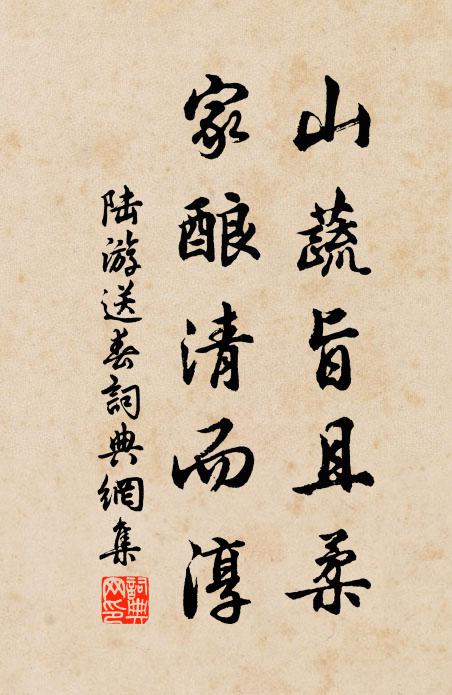 山蔬旨且柔
家酿清而淳
陆游送春詞典網集
詞典
网印